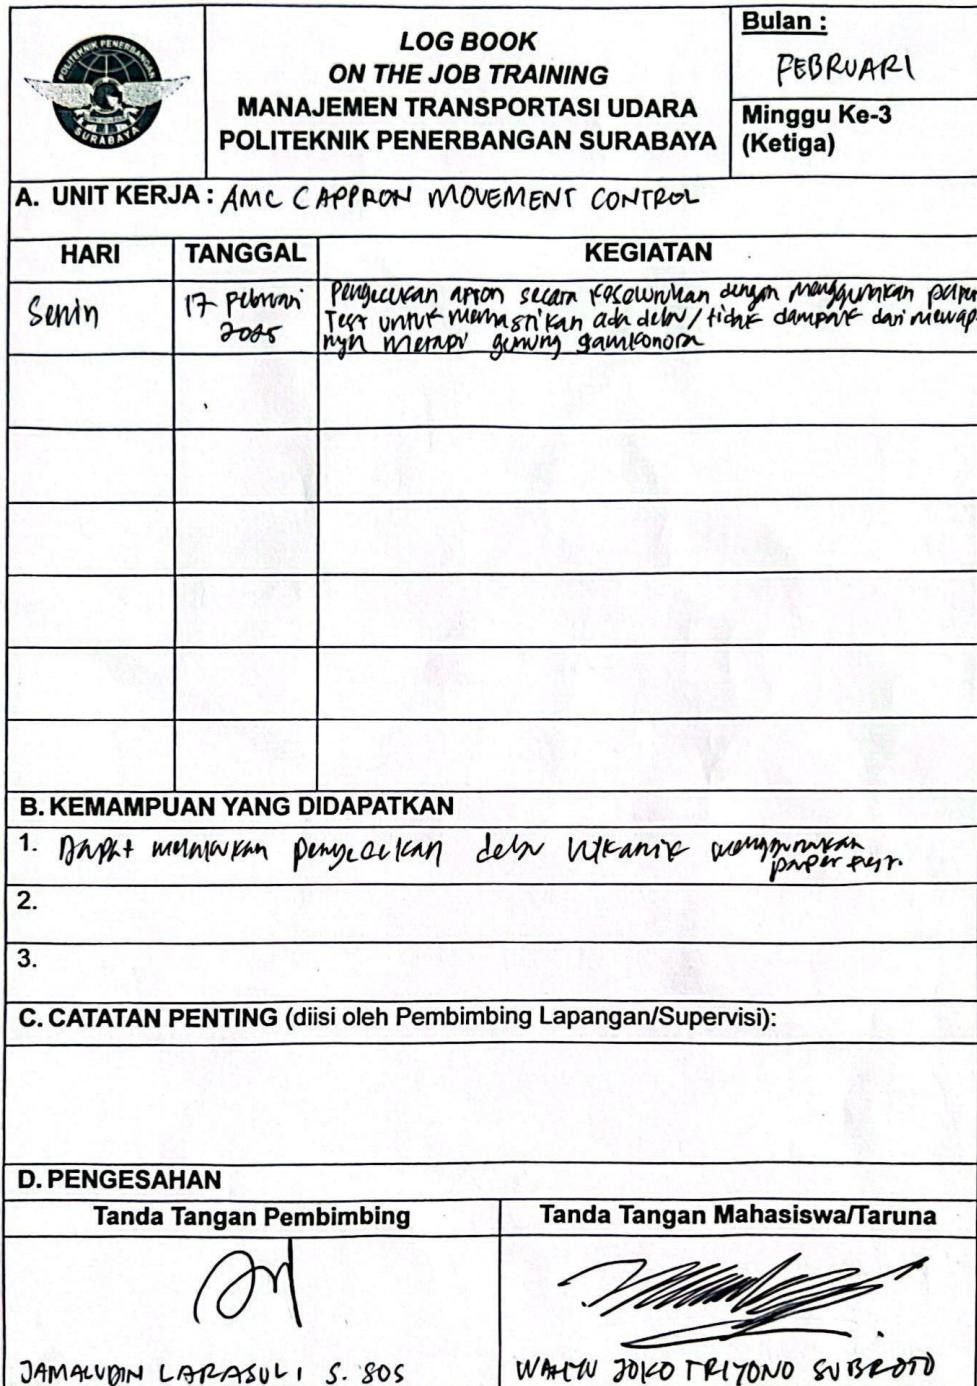 POLITEKNIK PENERBANGAN
SURABAYA
LOG BOOK
ON THE JOB TRAINING
MANAJEMEN TRANSPORTASI UDARA
POLITEKNIK PENERBANGAN SURABAYA
Bulan :
FEBRUARI
Minggu Ke-3
(Ketiga)
A. UNIT KERJA : AMC CAPPRON MOVEMENT CONTROL
HARI TANGGAL KEGIATAN
Senin 17 Februari 2025
Pengecekan apron secara keseluruhan dengan menggunakan paper
Test untuk memastikan ada debu/tidak dampak dari
nya merapi gunung gamkonora
B. KEMAMPUAN YANG DIDAPATKAN
1. Dapat melakukan pengecekan debu vulkanik menggunakan
paper test.
2.
3.
C. CATATAN PENTING (diisi oleh Pembimbing Lapangan/Supervisi):
D. PENGESAHAN
Tanda Tangan Pembimbing Tanda Tangan Mahasiswa/Taruna
JAMALUDIN LARASULI S. SOS WAHYU JOKO TRIYONO SUBROTO